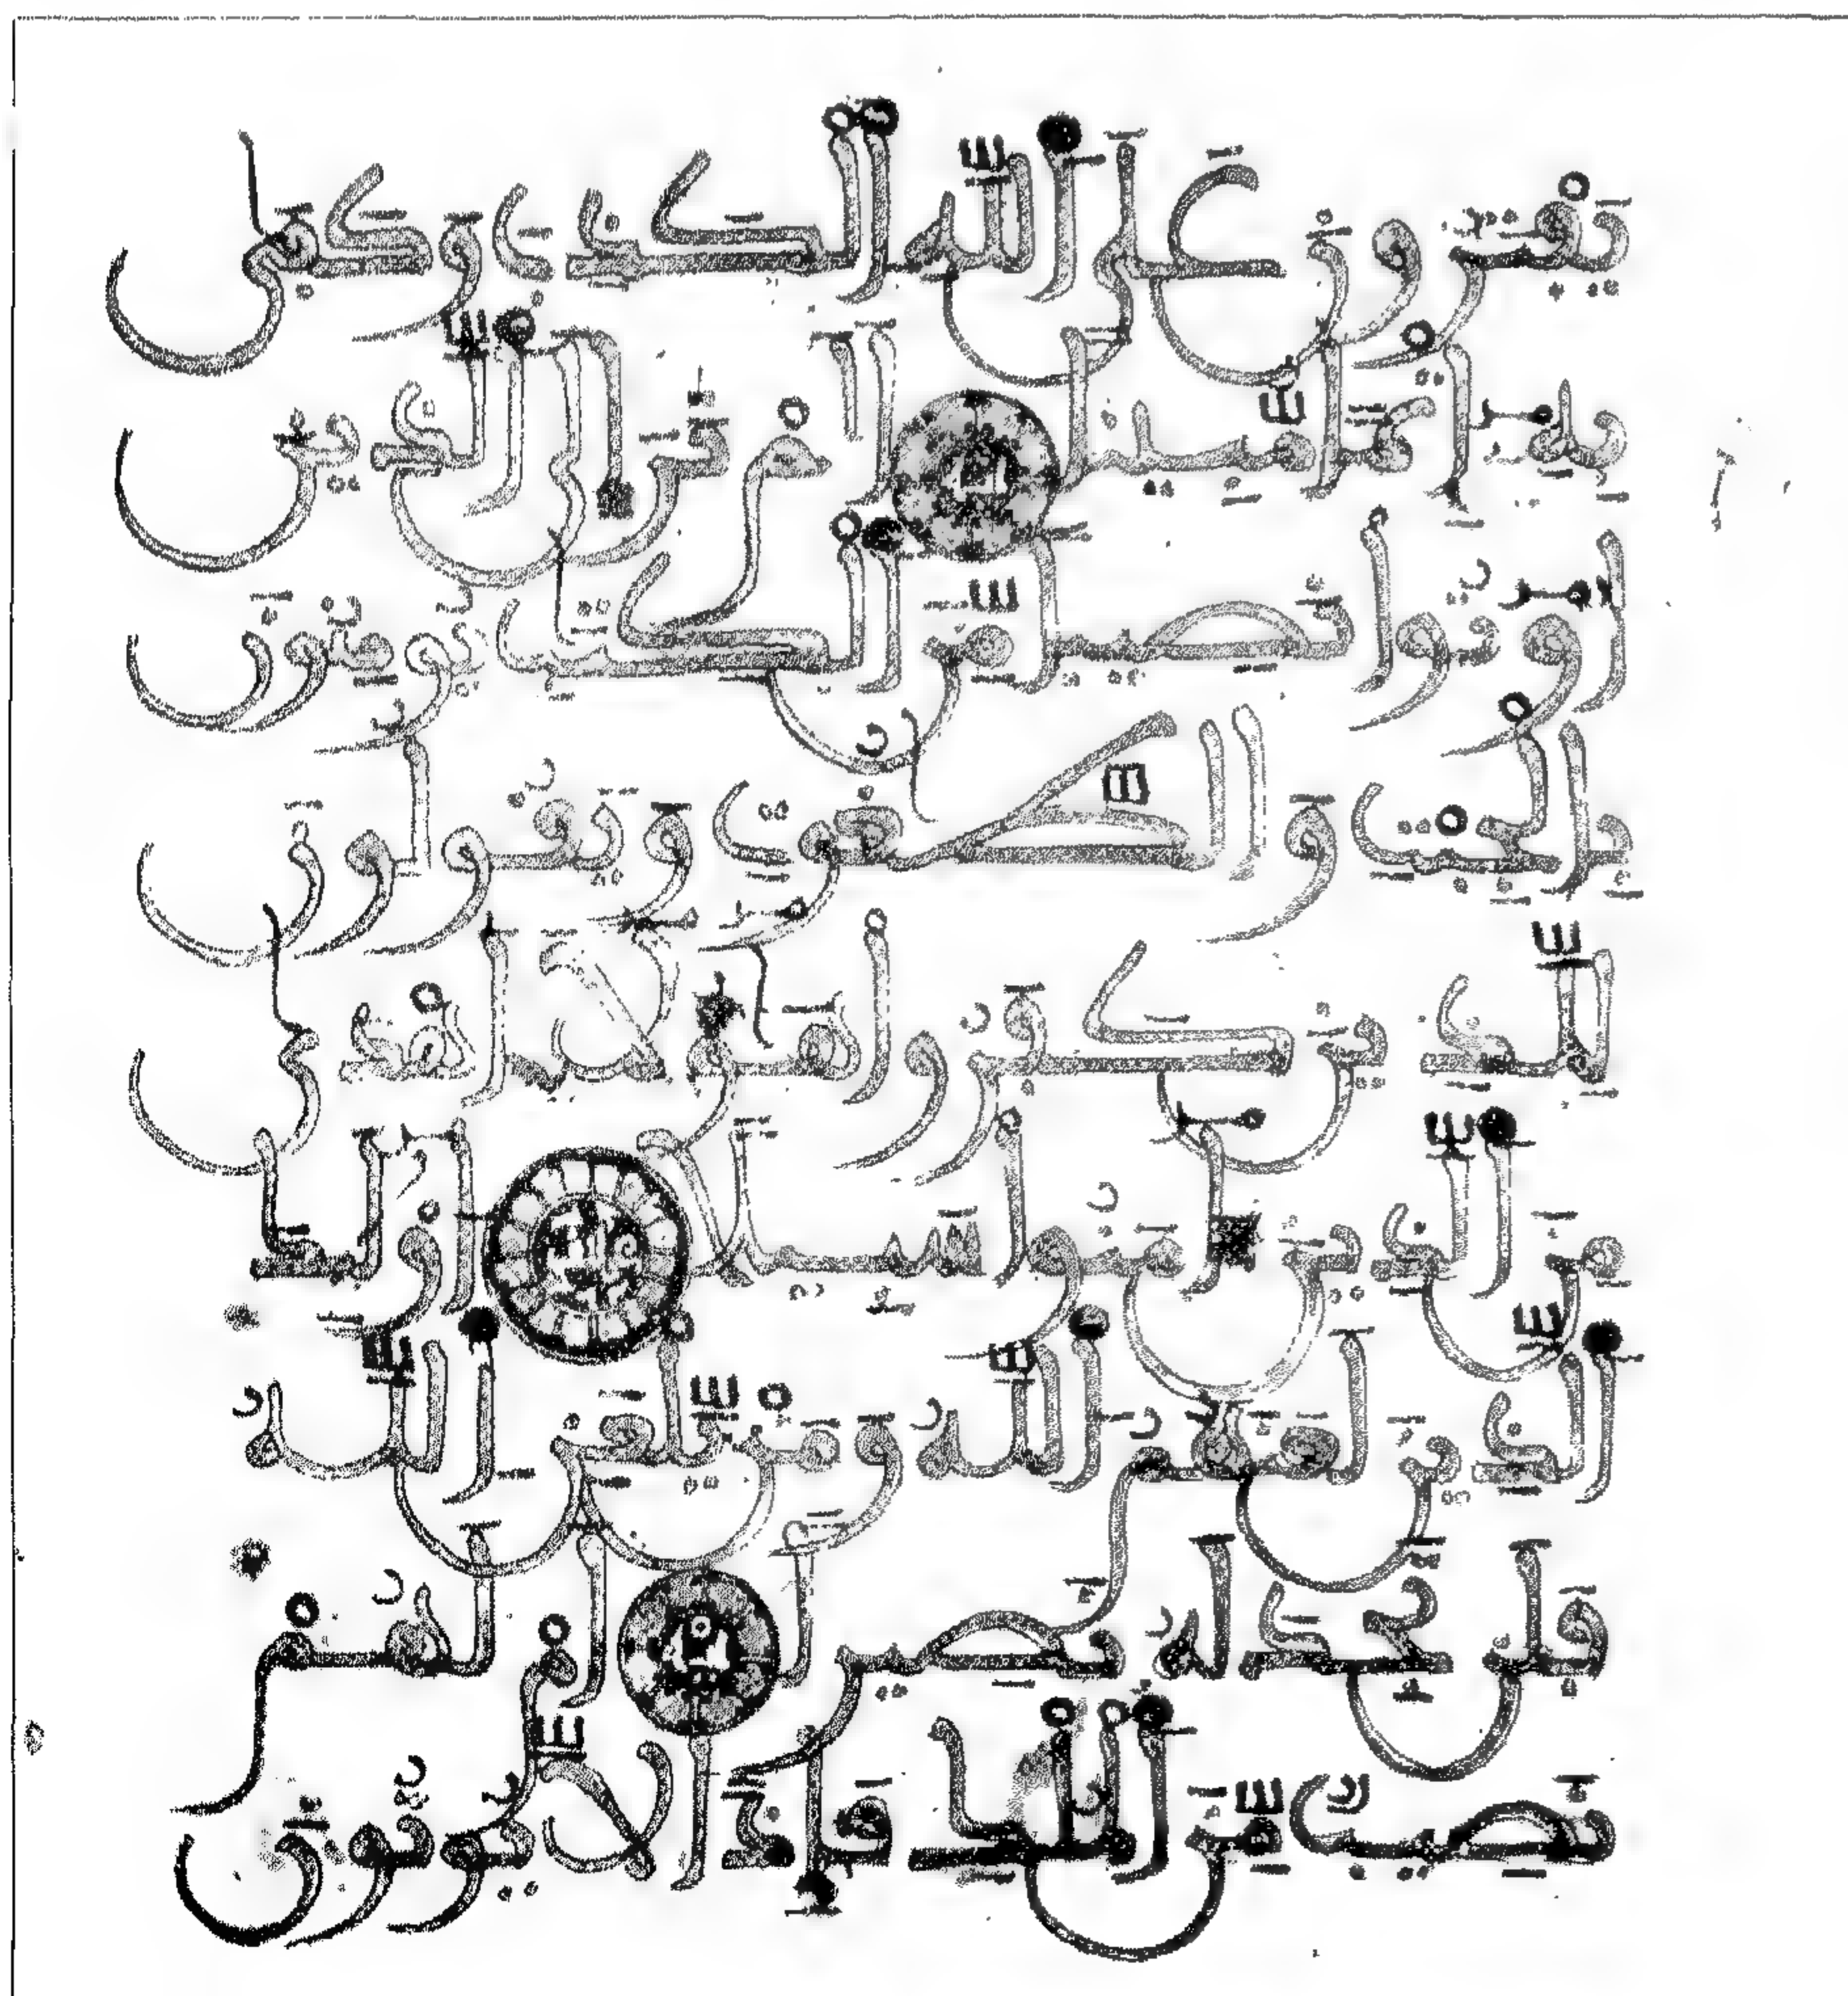 يَفْتَرُونَ عَلَى ٱللَّهِ ٱلْكَذِبَ وَكَفَى
بِهِ إِثْمًا مُّبِينًا أَلَمْ تَرَ إِلَى ٱلَّذِينَ
أُوتُوا نَصِيبًا مِّنَ ٱلْكِتَٰبِ يُومِنُونَ
بِٱلْجِبْتِ وَٱلطَّٰغُوتِ وَيَقُولُونَ
لِلَّذِينَ كَفَرُوا هَٰؤُلَاءِ أَهْدَىٰ
مِنَ ٱلَّذِينَ ءَامَنُوا سَبِيلًا أُولَٰئِكَ
ٱلَّذِينَ لَعَنَهُمُ ٱللَّهُ وَمَنْ يَّلْعَنِ ٱللَّهُ
فَلَن تَجِدَ لَهُ نَصِيرًا أَمْ لَهُمْ
نَصِيبٌ مِّنَ ٱلْمُلْكِ فَإِذًا لَّا يُوتُونَ